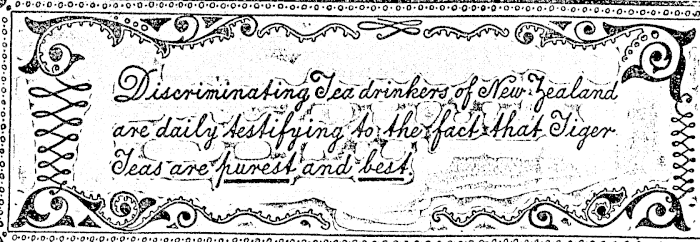 Discriminating Tea drinkers of New Zealand
are daily testifying to the fact that Tiger
Teas are purest and best.